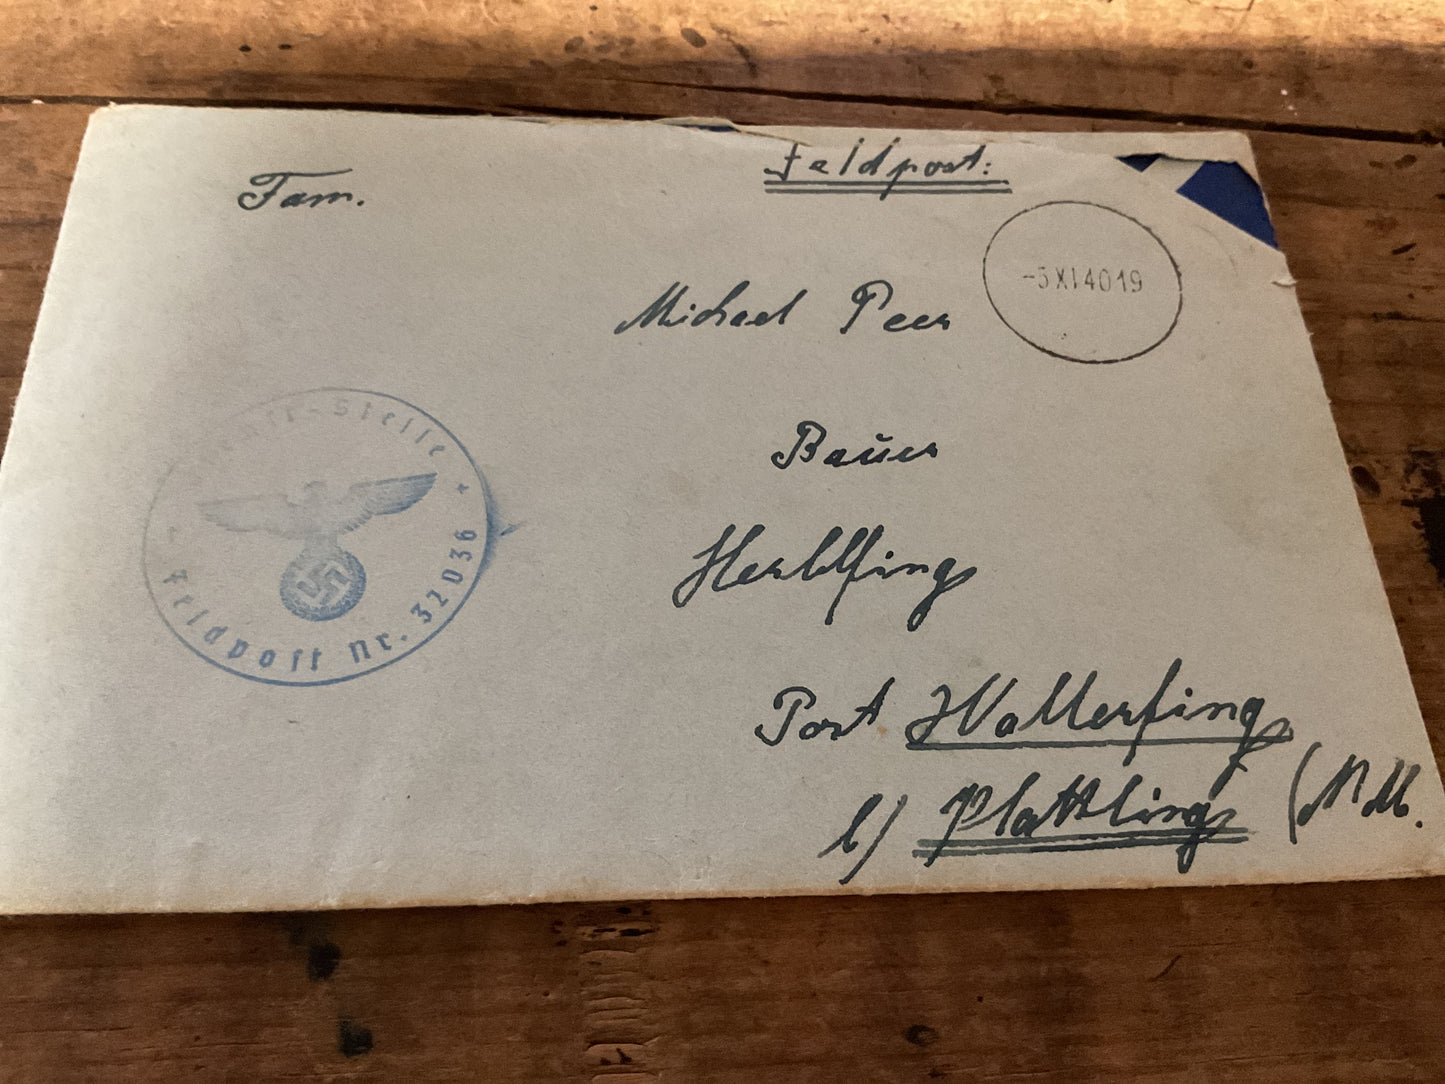 Feldpost:
Fam.
-5 XI 40 19
Michael Peer
Bauer
Post Wallerfing
b/ Plattling (
Stelle
Feldpost Nr. 32036